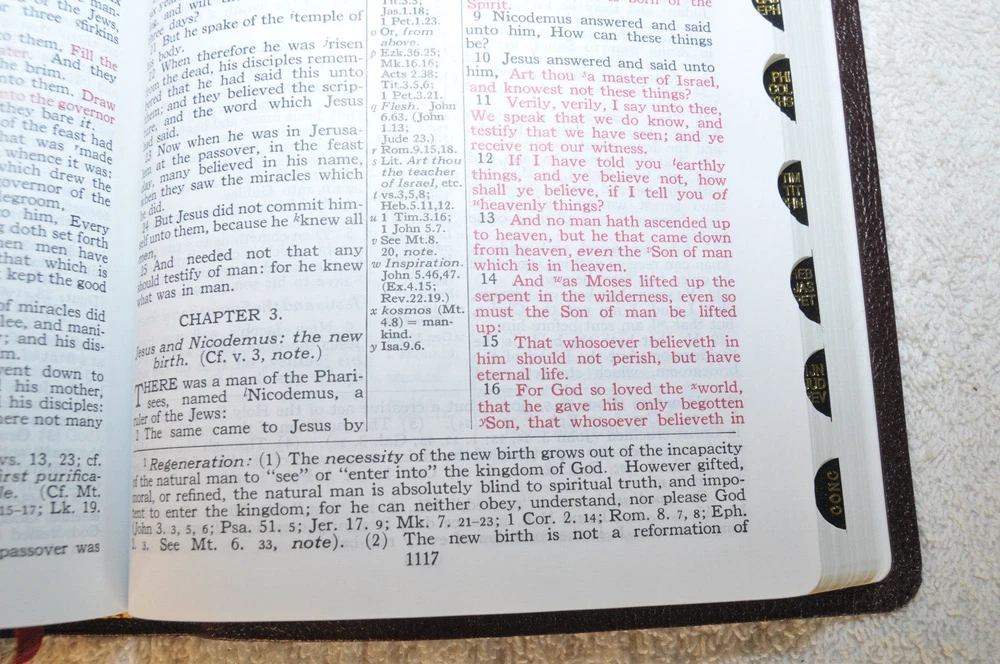 of the Jews,
three firkins
to them, Fill the
ater. And they
the brim.
nto them, Draw
nto the governor
they bare it.
of the feast had
that was ʳmade
whence it was:
which drew the
governor of the
degroom,
to him, Every
doth set forth
hen men have
that which is
kept the good
of miracles did
lee, and mani-
; and his dis-
m.
went down to
his mother,
his disciples:
here not many
vs. 13, 23; cf.
irst purifica-
le. (Cf. Mt.
15-17; Lk. 19.
passover was
and will
three days?
21 But he spake of the ⁱtemple of
his body.
22 When therefore he was ʲrisen
from the dead, his disciples remem-
bered that he had said this unto
them; and they believed the scrip-
ture, and the word which Jesus
had said.
23 Now when he was in Jerusa-
lem at the passover, in the feast
day, many believed in his name,
when they saw the miracles which
he did.
24 But Jesus did not commit him-
self unto them, because he ᵏknew all
men,
25 And needed not that any
should testify of man: for he knew
what was in man.
CHAPTER 3.
Jesus and Nicodemus: the new
birth. (Cf. v. 3, note.)
THERE was a man of the Phari-
sees, named ˡNicodemus, a
ruler of the Jews:
2 The same came to Jesus by
Tit.3.5;
Jas.1.18;
1 Pet.1.23.
o Or, from
above.
p Ezk.36.25;
Mk.16.16;
Acts 2.38;
Tit.3.5,6;
1 Pet.3.21.
q Flesh. John
6.63. (John
1.13;
Jude 23.)
r Rom.9.15,18.
s Lit. Art thou
the teacher
of Israel, etc.
t vs.3,5,8;
Heb.5.11,12.
u 1 Tim.3.16;
1 John 5.7.
v See Mt.8.
20, note.
w Inspiration.
John 5.46,47.
(Ex.4.15;
Rev.22.19.)
x kosmos (Mt.
4.8) = man-
kind.
y Isa.9.6.
born of the
Spirit.
9 Nicodemus answered and said
unto him, How can these things
be?
10 Jesus answered and said unto
him, Art thou ˢa master of Israel,
and knowest not these things?
11 Verily, verily, I say unto thee,
We speak that we do know, and
testify that we have seen; and ye
receive not our witness.
12 If I have told you ᵗearthly
things, and ye believe not, how
shall ye believe, if I tell you of
ᵘheavenly things?
13 And no man hath ascended up
to heaven, but he that came down
from heaven, even the ᵛSon of man
which is in heaven.
14 And ʷas Moses lifted up the
serpent in the wilderness, even so
must the Son of man be lifted
up:
15 That whosoever believeth in
him should not perish, but have
eternal life.
16 For God so loved the ˣworld,
that he gave his only begotten
ʸSon, that whosoever believeth in
¹ Regeneration: (1) The necessity of the new birth grows out of the incapacity
of the natural man to "see" or "enter into" the kingdom of God. However gifted,
moral, or refined, the natural man is absolutely blind to spiritual truth, and impo-
tent to enter the kingdom; for he can neither obey, understand, nor please God
(John 3. 3, 5, 6; Psa. 51. 5; Jer. 17. 9; Mk. 7. 21-23; 1 Cor. 2. 14; Rom. 8. 7, 8; Eph.
2. 3. See Mt. 6. 33, note). (2) The new birth is not a reformation of
1117
EPH
PHI
COL
THS
TIM
TIT
PHN
HEB
JAS
PET
JN
JUD
REV
CONC